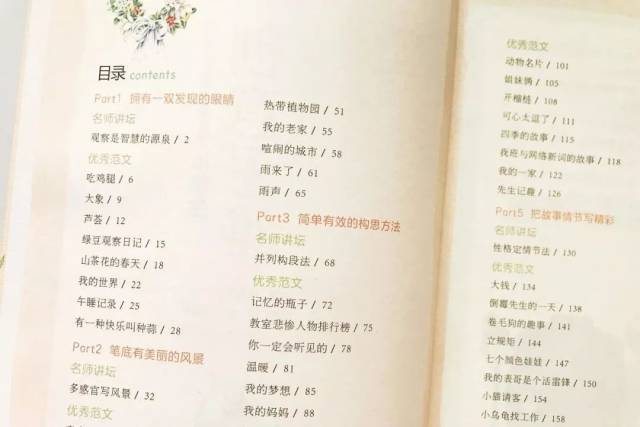 目录 contents
Part1 拥有一双发现的眼睛
名师讲坛
观察是智慧的源泉 / 2
优秀范文
吃鸡腿 / 6
大象 / 9
芦荟 / 12
绿豆观察日记 / 15
山茶花的春天 / 18
我的世界 / 22
午睡记录 / 25
有一种快乐叫种蒜 / 28
Part2 笔底有美丽的风景
名师讲坛
多感官写风景 / 32
优秀范文
热带植物园 / 51
我的老家 / 55
喧闹的城市 / 58
雨来了 / 61
雨声 / 65
Part3 简单有效的构思方法
名师讲坛
并列构段法 / 68
优秀范文
记忆的瓶子 / 72
教室悲惨人物排行榜 / 75
你一定会听见的 / 78
温暖 / 81
我的梦想 / 85
我的妈妈 / 88
优秀范文
动物名片 / 101
姐妹俩 / 105
开榴梿 / 108
可心太逗了 / 111
四季的故事 / 115
我班与网络新词的故事 / 118
我的一家 / 122
先生记趣 / 126
Part5 把故事情节写精彩
名师讲坛
性格定情节法 / 130
优秀范文
大钱 / 134
倒霉先生的一天 / 138
卷毛狗的趣事 / 141
立规矩 / 144
七个颜色娃娃 / 147
我的表哥是个活雷锋 / 150
小猫请客 / 154
小乌龟找工作 / 158